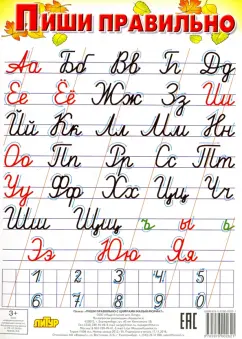 ПИШИ ПРАВИЛЬНО
Аа Бб Вв Гг Дд
Ее Ёё Жж Зз Ии
Йй Кк Лл Мм Нн
Оо Пп Рр Сс Тт
Уу Фф Хх Цц Чч
Шш Щщ ъ ы ь
Ээ Юю Яя
1 2 3 4 5
6 7 8 9 0
3+
ЛИТУР
ЕАС